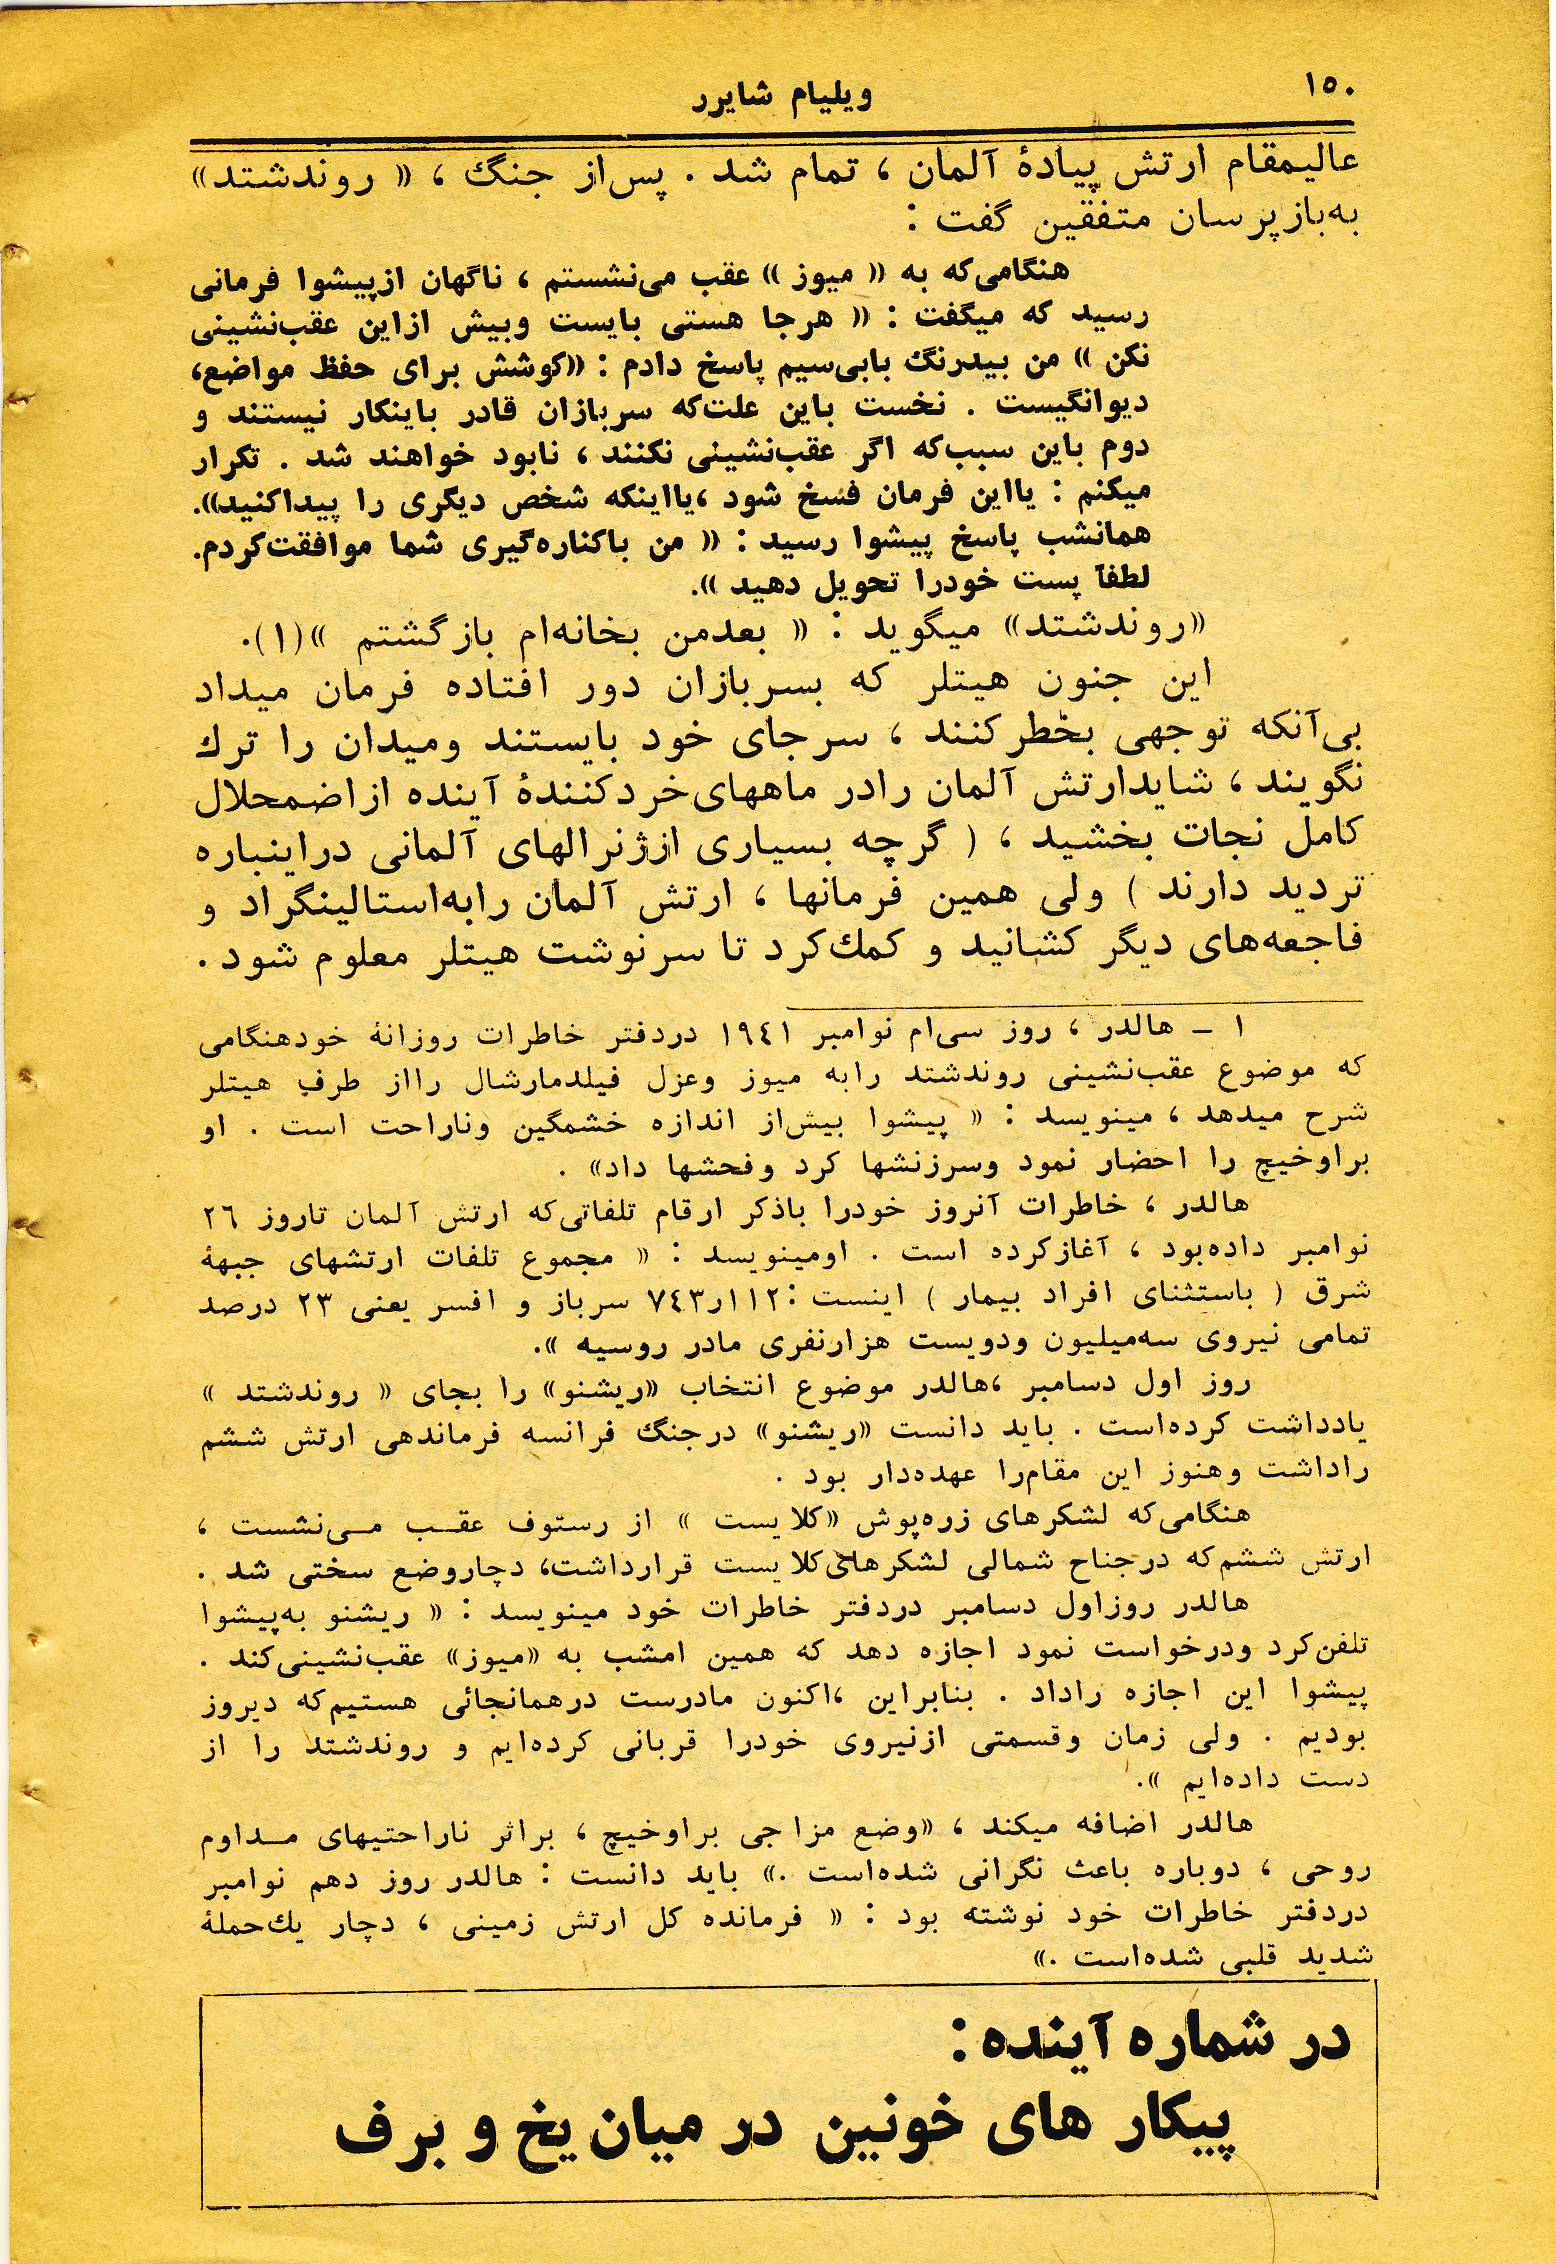 ۱۵۰
ویلیام شایرر
عالیمقام ارتش پیادهٔ آلمان ، تمام شد . پس‌از جنگ ، « روندشتد»
به‌بازپرسان متفقین گفت :
هنگامی‌که به « میوز » عقب می‌نشستم ، ناگهان ازپیشوا فرمانی
رسید که میگفت : « هرجا هستی بایست وبیش ازاین عقب‌نشینی
نکن » من بیدرنگ بابی‌سیم پاسخ دادم : «کوشش برای حفظ مواضع،
دیوانگیست . نخست باین علت‌که سربازان قادر باینکار نیستند و
دوم باین سبب‌که اگر عقب‌نشینی نکنند ، نابود خواهند شد . تکرار
میکنم : یااین فرمان فسخ شود ،یااینکه شخص دیگری را پیداکنید».
همانشب پاسخ پیشوا رسید : « من باکناره‌گیری شما موافقت‌کردم.
لطفاً پست خودرا تحویل دهید ».
«روندشتد» میگوید : « بعدمن بخانه‌ام بازگشتم »(۱).
این جنون هیتلر که بسربازان دور افتاده فرمان میداد
بی‌آنکه توجهی بخطرکنند ، سرجای خود بایستند ومیدان را ترك
نگویند ، شایدارتش آلمان رادر ماههای‌خردکنندهٔ آینده ازاضمحلال
کامل نجات بخشید ، ( گرچه بسیاری ازژنرالهای آلمانی دراینباره
تردید دارند ) ولی همین فرمانها ، ارتش آلمان رابه‌استالینگراد و
فاجعه‌های دیگر کشانید و کمك‌کرد تا سرنوشت هیتلر معلوم شود .
۱ – هالدر ، روز سی‌ام نوامبر ۱۹٤۱ دردفتر خاطرات روزانهٔ خودهنگامی
که موضوع عقب‌نشینی روندشتد رابه میوز وعزل فیلدمارشال رااز طرف هیتلر
شرح میدهد ، مینویسد : « پیشوا بیش‌از اندازه خشمگین وناراحت است . او
براوخیچ را احضار نمود وسرزنشها کرد وفحشها داد» .
هالدر ، خاطرات آنروز خودرا باذکر ارقام تلفاتی‌که ارتش آلمان تاروز ۲٦
نوامبر داده‌بود ، آغازکرده است . اومینویسد : « مجموع تلفات ارتشهای جبههٔ
شرق ( باستثنای افراد بیمار ) اینست :۷٤۳ر۱۱۲ سرباز و افسر یعنی ۲۳ درصد
تمامی نیروی سه‌میلیون ودویست هزارنفری مادر روسیه ».
روز اول دسامبر ،هالدر موضوع انتخاب «ریشنو» را بجای « روندشتد »
یادداشت کرده‌است . باید دانست «ریشنو» درجنگ فرانسه فرماندهی ارتش ششم
راداشت وهنوز این مقام‌را عهده‌دار بود .
هنگامی‌که لشکرهای زره‌پوش «کلایست » از رستوف عقب می‌نشست ،
ارتش ششم‌که درجناح شمالی لشکرهای‌کلایست قرارداشت، دچاروضع سختی شد .
هالدر روزاول دسامبر دردفتر خاطرات خود مینویسد : « ریشنو به‌پیشوا
تلفن‌کرد ودرخواست نمود اجازه دهد که همین امشب به «میوز» عقب‌نشینی‌کند .
پیشوا این اجازه راداد . بنابراین ،اکنون مادرست درهمانجائی هستیم‌که دیروز
بودیم . ولی زمان وقسمتی ازنیروی خودرا قربانی کرده‌ایم و روندشتد را از
دست داده‌ایم ».
هالدر اضافه میکند ، «وضع مزاجی براوخیچ ، براثر ناراحتیهای مداوم
روحی ، دوباره باعث نگرانی شده‌است .» باید دانست : هالدر روز دهم نوامبر
دردفتر خاطرات خود نوشته بود : « فرمانده کل ارتش زمینی ، دچار یك‌حملهٔ
شدید قلبی شده‌است .»
در شماره آینده :
پیکار های خونین در میان یخ و برف